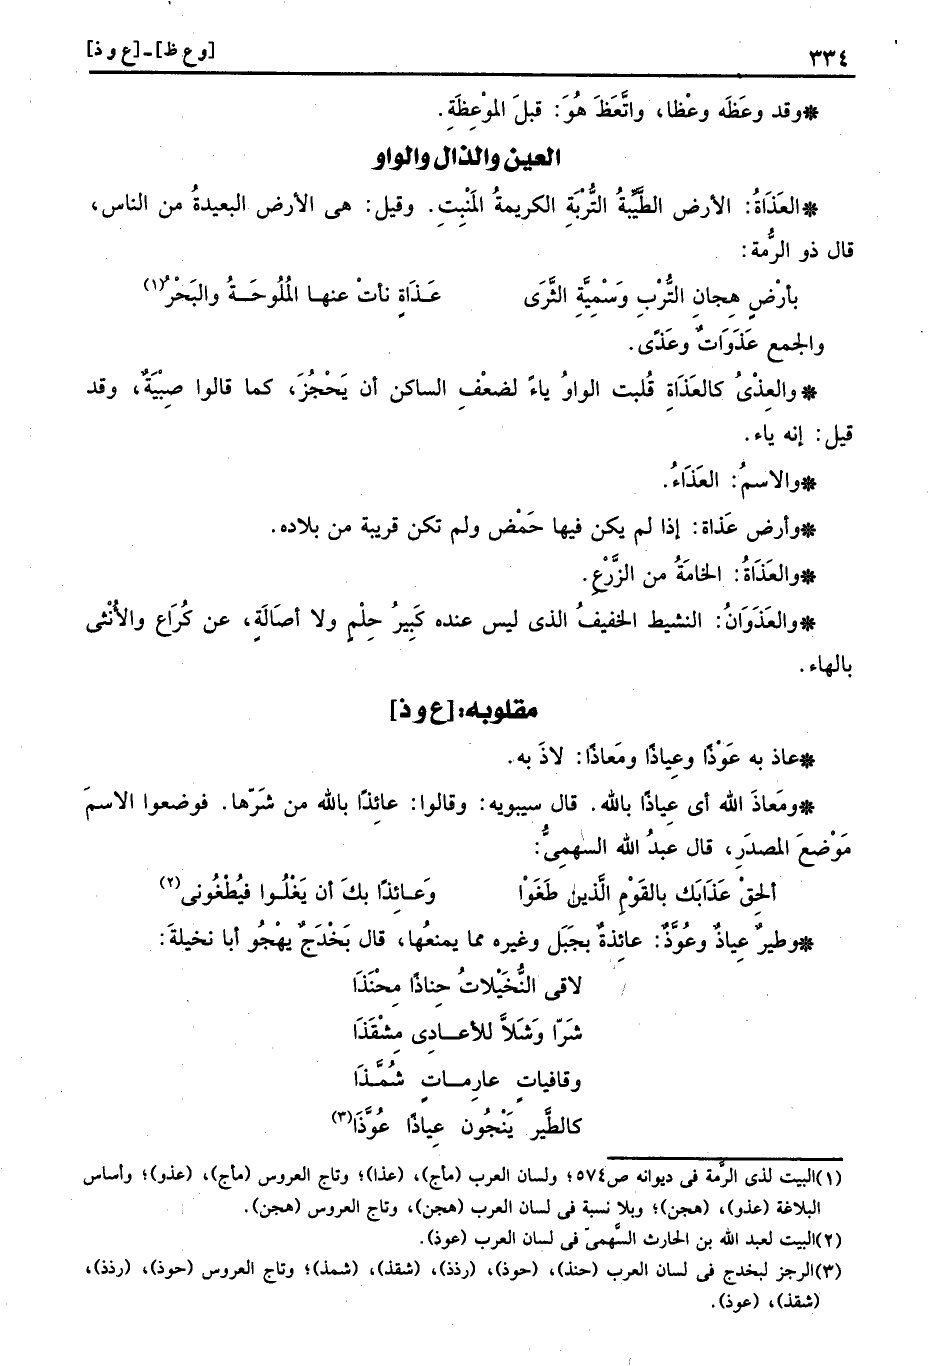 ٣٣٤ [وع ظ]ـ[ع وذ]
*وقد وعَظَه وعْظا، واتَّعَظَ هُوَ: قبلَ الموْعِظَةِ.
العين والذال والواو
*العَذَاةُ: الأرض الطَّيِّبةُ التُّرْبَةِ الكريمةُ المَنْبِتِ. وقيل: هى الأرض البعيدةُ من الناس،
قال ذو الرُّمة:
بأرْضٍ هِجانِ التُّرْبِ وَسْمِيَّةِ الثَّرَى عَـذَاةٍ نأتْ عنهـا المُلُوحَـةُ والبَحْرُ(١)
والجمع عَذَوَاتٌ وعَذًى.
*والعِذْىُ كالعَذَاةِ قُلبت الواوُ ياءً لضعْفِ الساكن أن يَحْجُزَ، كما قالوا صِبْيَةٌ، وقد
قيل: إنه ياء.
*والاسمُ: العَذَاءُ.
*وأرض عَذاة: إذا لم يكن فيها حَمْض ولم تكن قريبة من بلاده.
*والعَذَاةُ: الخامَةُ من الزَّرْعِ.
*والعَذَوَانُ: النشيط الخفيفُ الذى ليس عنده كَبِيرُ حِلْمٍ ولا أصالَةٍ، عن كُرَاع والأُنْثى
بالهاء.
مقلوبه: [ع وذ]
*عاذ به عَوْذًا وعِياذًا ومَعاذًا: لاذَ به.
*ومَعاذَ الله أى عِياذًا بالله. قال سيبويه: وقالوا: عائذًا بالله من شَرّها. فوضعوا الاسمَ
مَوْضعَ المصدَرِ، قال عبدُ الله السهمِىُّ:
ألحِقْ عَذَابَك بالقَوْمِ الَّذينَ طَغَوْا وَعَـائذًا بكَ أن يَغْلُـوا فيُطْغُونى(٢)
*وطيرٌ عِياذٌ وعُوَّذٌ: عائذةٌ بجَبَل وغيره مما يمنعُها، قال بَخْدَجٌ يهْجُو أبا نخيلةَ:
لاقى النُّخَيْلاتُ حِناذًا مِحْنَذَا
شَرّا وَشَلاَّ للأعـادِى مِشْقَذَا
وقافياتٍ عارِمـاتٍ شُمَّـذَا
كالطَّير يَنْجُون عِياذًا عُوَّذَا(٣)
(١)البيت لذى الرُّمة فى ديوانه ص٥٧٤؛ ولسان العرب (مأج)، (عذا)؛ وتاج العروس (مأج)، (عذو)؛ وأساس
البلاغة (عذو)، (هجن)؛ وبلا نسبة فى لسان العرب (هجن)، وتاج العروس (هجن).
(٢)البيت لعبد الله بن الحارث السَّهمىّ فى لسان العرب (عوذ).
(٣)الرجز لبخدج فى لسان العرب (حنذ)، (حوذ)، (رذذ)، (شقذ)، (شمذ)؛ وتاج العروس (حوذ)، (رذذ)،
(شقذ)، (عوذ).